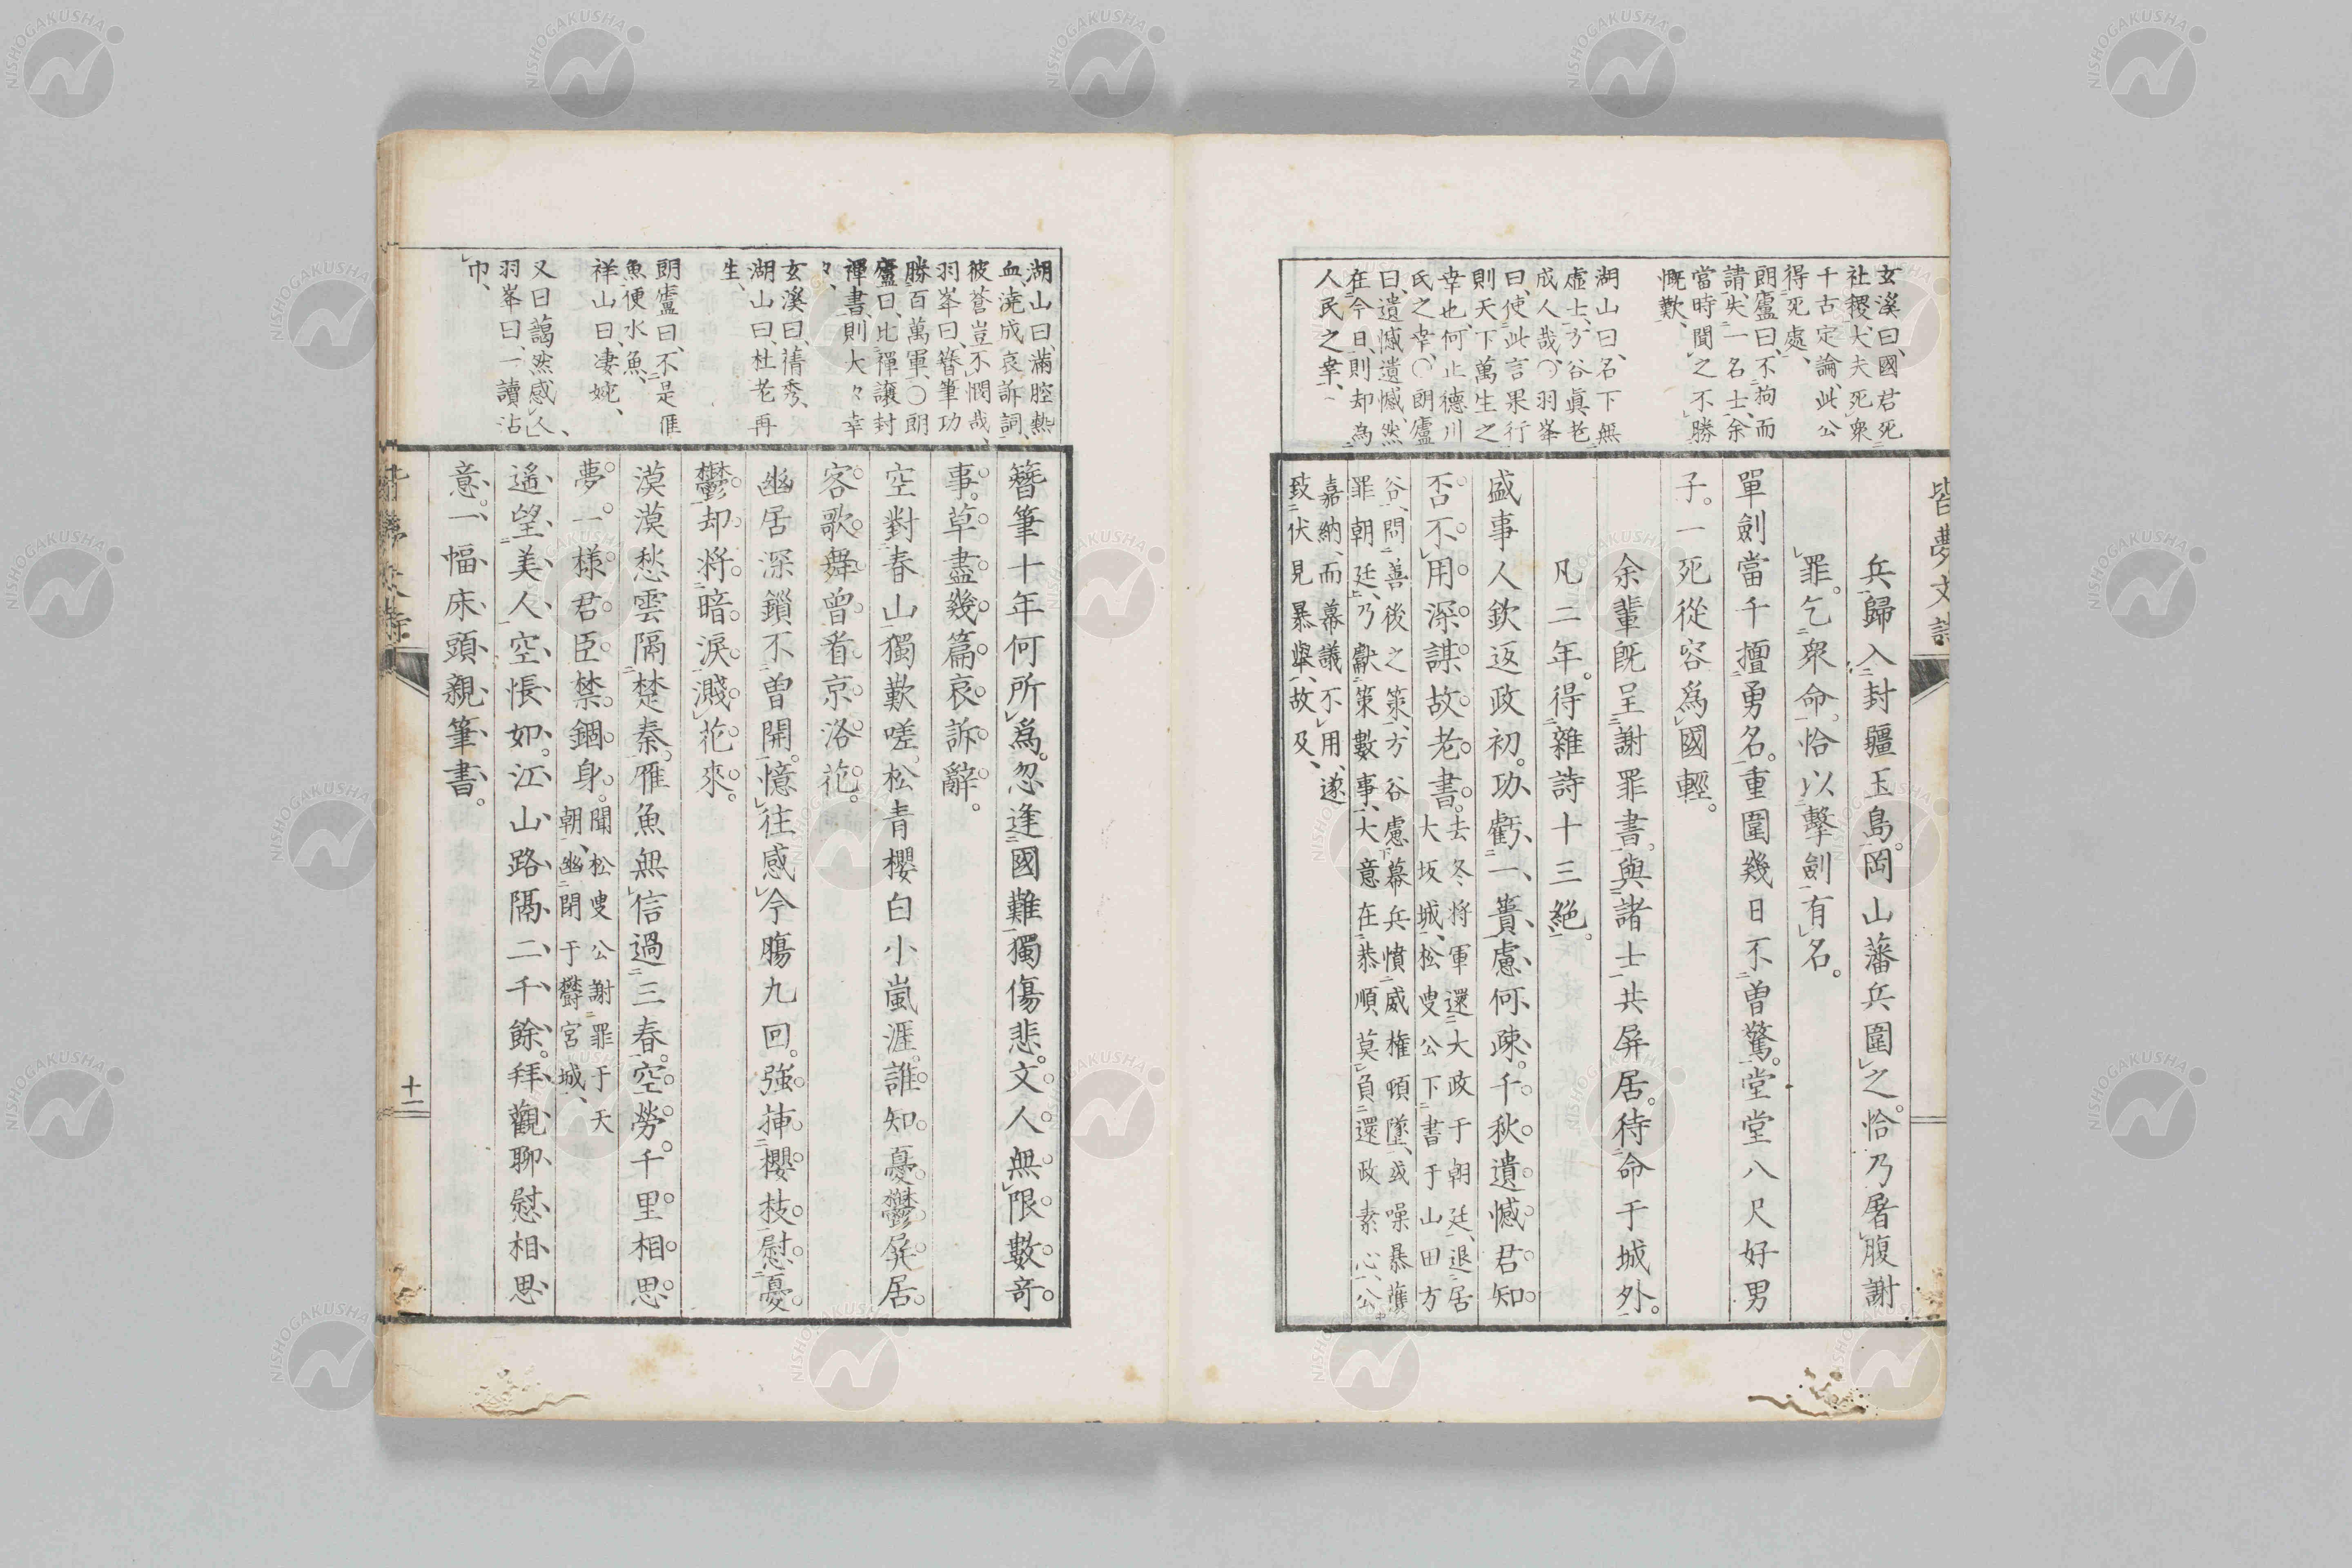 皆夢文詩
玄溪曰、國君死
社稷、大夫死衆
千古定論、此公
得死處、
朗廬曰、不狥而
請、失一名士、余
當時聞之不勝
慨歎、
湖山曰、名下無
虛士、方谷眞老
成人哉、〇羽峯
曰、使此言果行
則天下萬生之
幸也、何止德川
氏之幸、〇朗廬
曰、遺憾遺憾、然
在今日、則却為
人民之幸、
兵歸入封疆玉島。岡山藩兵圍之。恰乃屠腹謝
罪。乞衆命。恰以擊劍有名。
單劍當千擅勇名。重圍幾日不曾驚。堂堂八尺好男
子。一死從容爲國輕。
余輩既呈謝罪書。與諸士共屏居。待命于城外。
凡二年。得雜詩十三絕。
盛事人欽返政初。功虧一簣慮何疎。千秋遺憾君知
否。不用深謀故老書。去冬將軍還大政于朝廷、退居
大坂城、松叟公下書于山田方
谷、問善後之策、方谷慮幕兵憤威權頓墜、或噪暴獲
罪朝廷、乃獻策數事、大意在恭順、莫負還政素心、公
嘉納、而幕議不用、遂
致伏見暴擧、故及、
湖山曰、滿腔熱
血、澆成哀訴詞、
彼蒼豈不憫哉、
羽峯曰、簪筆功
勝百萬軍、〇朗
廬曰、比禪讓封
禪書、則大々幸
々、
玄溪曰、淸秀、
湖山曰、杜老再
生、
朗廬曰、不是隹
魚、便水魚、
祥山曰、凄婉、
又曰、藹然感人、
羽峯曰、一讀沾
巾、
簪筆十年何所爲。忽逢國難獨傷悲。文人無限數奇
事。草盡幾篇哀訴辭。
空對春山獨歎嗟。松青櫻白小嵐涯。誰知憂鬱屛居
客。歌舞曾看京洛花。
幽居深鎖不曾開。憶往感今膓九回。強挿櫻枝慰憂
鬱。却將暗淚濺花來。
漠漠愁雲隔楚秦。雁魚無信過三春。空勞千里相思
夢。一樣君臣禁錮身。聞松叟公謝罪于天
朝、幽閉于欝宮城、
遥望美人空悵如。江山路隔二千餘。拜觀聊慰相思
意。一幅床頭親筆書。
十一